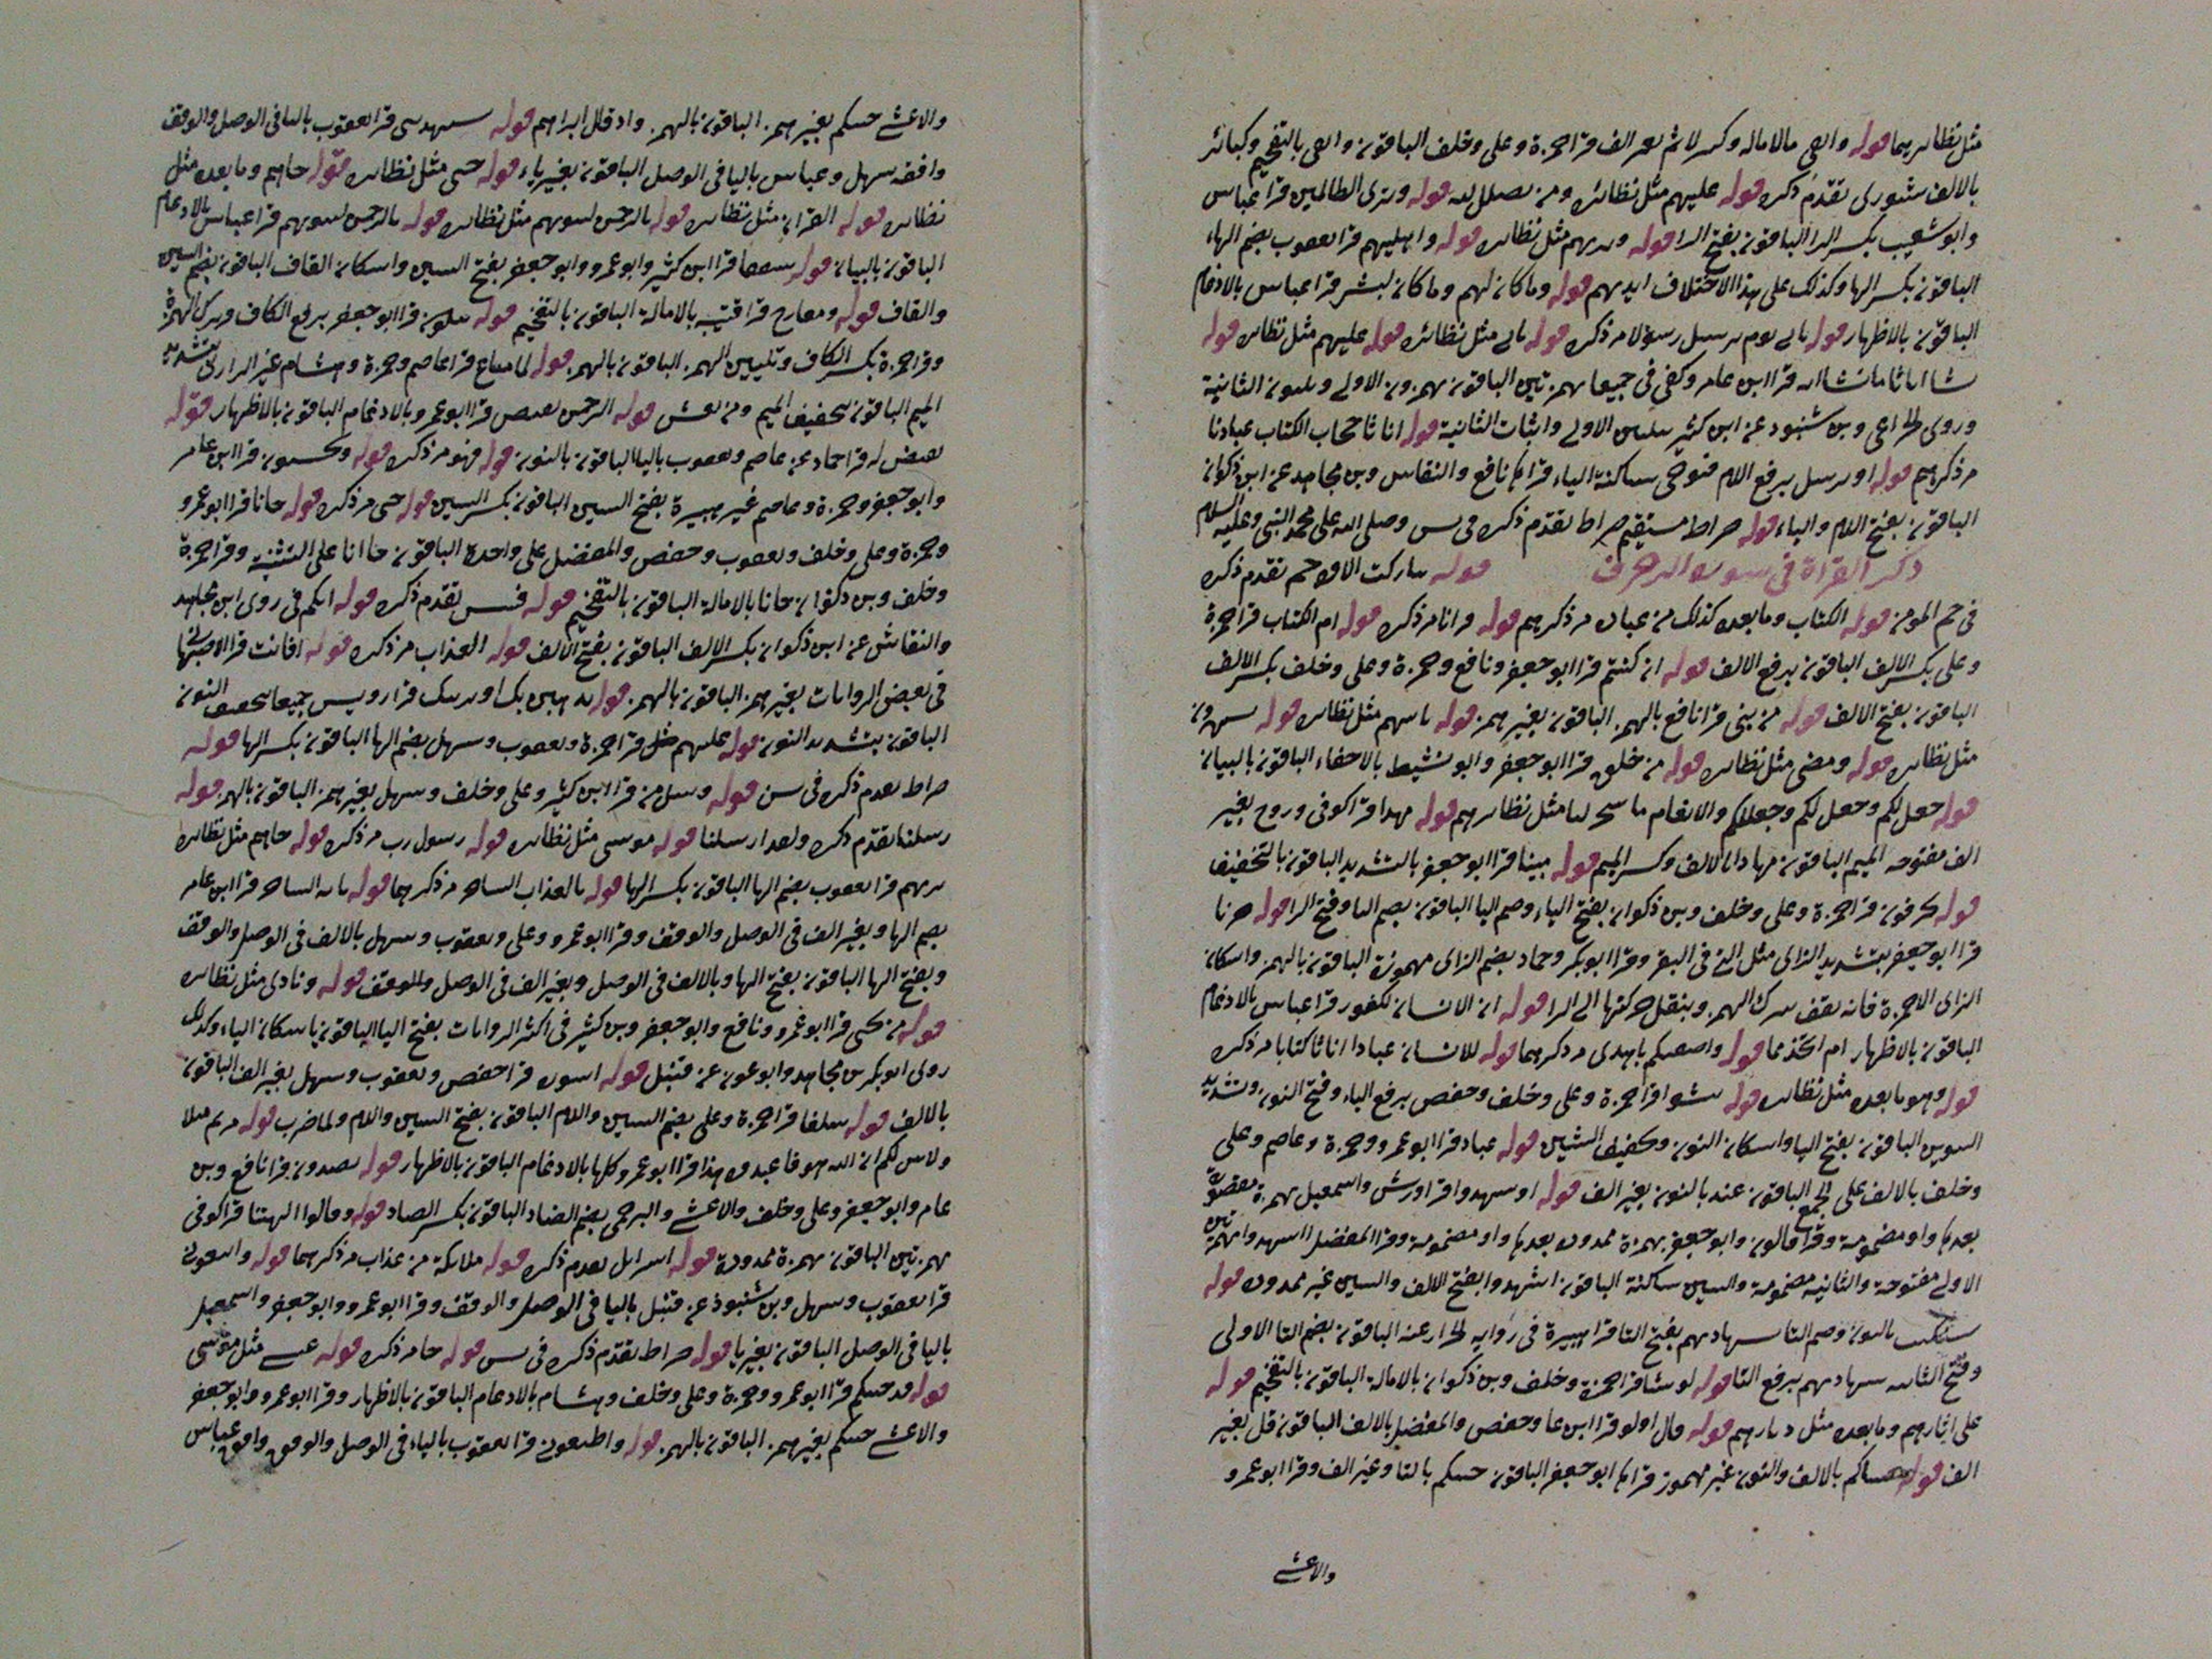 مثل نظاىرهما قوله والعى بالاماله وكسر لا ثم بعىر الف قرا حمزة وعلى وخلف الباقون والعى بالتفخيم وكبائر
بالالف شورى تقدم ذكره قوله عليهم مثل نظائره ومن يضلل الله قوله وترى الظالمين قرا عباس
وابو شعيب بكسر الرا الباقون بفتح الرا قوله وىدىهم مثل نظاىره قوله واهليهم قرا يعقوب بضم الهاء
الباقون بكسر الها وكذلك على هذا الاختلاف ايديهم قوله وما كان لهم وما كان لبشر قرا عباس بالادغام
الباقون بالاظهار قوله ىاىى يوم ىرسل رسولا مر ذكره قوله ىالى مثل نظائره قوله عليهم مثل نظاىره قوله
ىشا اناثا ما ىشا انه قرا ابن عامر وكفى فى جميعا بهمزتين الباقون بهمزون الاولى وىلىنون الثانية
وروى الخزاعى وبن شنبود عن ابن كثير ىىلىىن الاولى واثبات الثانية قوله اناثا حجاب الكتاب عبادنا
مر ذكرهم قوله او يرسل برفع اللام فيوحى ساكنة الياء قراها نافع والنقاش وبن مجاهد عن ابن ذكوان
الباقون بفتح اللام والياء قوله صراط مستقيم صراط تقدم ذكره فى ىس وصلى الله على محمد النبى وعليه السلام
ذكر القراة فى سورة الزخرف قوله ىىاركت الا فوا حم تقدم ذكره
فى حم المومن قوله الكتاب وما بعده كذلك من عباده مر ذكرهم قوله قرانا مر ذكره قوله ام الكتاب قرا حمزة
وعلى بكسر الالف الباقون برفع الالف قوله ان كنتم قرا ابو جعفر ونافع وحمزة وعلى وخلف بكسر الالف
الباقون بفتح الالف قوله من نبى قرا نافع بالهمز الباقون بغير همز قوله ىاىىهم مثل نظاىره قوله ىىىهزون
مثل نظاىره قوله ومضى مثل نظاىره قوله من خلق قرا ابو جعفر وابو نشيط بالاخفاء الباقون بالبيان
قوله جعل لكم وجعل لكم وجعل لكم والانعام ما سخر لنا مثل نظاىرهم قوله مهدا قرا كوفى وروح بغير
الف مفتوحه الميم الباقون مهادا بالالف وكسر الميم قوله ميتا قرا ابو جعفر بالتشديد الباقون بالتخفيف
قوله ىخرجون قرا حمزة وعلى وخلف وبن ذكوان بفتح الياء وضم اليا الباقون بضم اليا وفتح الرا قوله جزءا
قرا ابو جعفر بتشديد الزاى مثل الذى فى البقر وقرا ابو بكر وحماد بضم الزاى مهموزة الباقون بالهمز واسكان
الزاى الا حمزة فانه يقف بترك الهمز وبنقل حركتها الى الرا قوله ان الانسان لكفور قرا عباس بالادغام
الباقون بالاظهار ام اتخذ مما قوله واصفيكم باهدى مر ذكرهما قوله للانسان عبادا اناثا كتابا مر ذكره
قوله وهو ما بعده مثل نظاىره قوله ىنشوا قرا حمزة وعلى وخلف وحفص برفع الياء وفتح النون وتشديد
الشين الباقون بفتح اليا واسكان النون وتخفيف الشين قوله عباد قرا ابو عمرو وحمزة وعاصم وعلى
وخلف بالالف على الجمع الباقون عند بالنون بغير الف قوله اوشهدوا قرا ورش واسمعيل بهمزة مقصورة
بعدها واو مضمومة وقرا قالون وابو جعفر بهمزة ممدودة بعدها واو مضمومة وقرا المفضل ااشهدوا بهمزتين
الاولى مفتوحة والثانية مضمومة والسين ساكنة الباقون اشهدوا بفتح الالف والسين غير ممدودة قوله
سنكتب بالنون وضم التا شهادتهم بفتح التا قرا هبيرة فى رواية الخزاز عنه الباقون بضم التا الاولى
وفتح الثانىه شهادتهم برفع التا قوله لو شا قرا حمزة وخلف وبن ذكوان بالامالة الباقون بالتفخيم قوله
على اثارهم وما بعده مثل ديارهم قوله قال اولو قرا ابن عامر وحفص والمفضل بالالف الباقون قل بغير
الف قوله جيناكم بالالف والنون غير مهموز قراها ابو جعفر الباقون جيتكم بالتا وغير الف وقرا ابو عمرو
والاعشى
والاعشى جيتكم بغير همز الباقون بالهمز واد قال ابراهيم قوله سيهدىىى قرا يعقوب باليا فى الوصل والوقف
وافقه سهل وعباس باليا فى الوصل الباقون بغير ياء قوله حتى مثل نظاىره قوله جاهم وما بعده مثل
نظاىره قوله القران مثل نظاىره قوله بالرحمن لبيوتهم مثل نظاىره قوله بالرحمن لبيوتهم قرا عباس بالادغام
الباقون بالبيان قوله سقفا قرا ابن كثير وابو عمرو وابو جعفر بفتح السين واسكان القاف الباقون بضم السين
والقاف قوله ومعارج قرا قتيبه بالامالة الباقون بالتفخيم قوله ىىكون قرا ابو جعفر برفع الكاف وىىرك الهمزة
وقرا حمزة بكسر الكاف وتليين الهمز الباقون بالهمز قوله لما متاع قرا عاصم وحمزة وهشام غير الرازى بتشديد
الميم الباقون بتخفيف الميم ومن يعش قوله الرحمن نقيض قرا ابو عمرو بالادغام الباقون بالاظهار قوله
نقيض له قرا حماد عن عاصم ويعقوب باليا الباقون بالنون قوله فهو مر ذكره قوله ويحسبون قرا ابن عامر
وابو جعفر وحمزة وعاصم غير هبيرة بفتح السين الباقون بكسر السين قوله حتى مر ذكره قوله جانا قرا ابو عمرو
وحمزة وعلى وخلف ويعقوب وحفص والمفضل على واحدة الباقون جاانا على التثنيه وقرا حمزة
وخلف وبن ذكوان جانا بالامالة الباقون بالتفخيم قوله فبىس تقدم ذكره قوله انكم فى روى ابن مجاهد
والنقاش عن ابن ذكوان بكسر الالف الباقون بفتح الالف قوله العذاب مر ذكره قوله افانت قرا الاصبهانى
فى بعض الروايات بغير همز الباقون بالهمز قوله ىذهبن بك او نرينك قرا رويس جميعا بتخفيف النون
الباقون بتشديد النون قوله عليهم مثل قرا حمزة ويعقوب وسهل بضم الها الباقون بكسر الها قوله
صراط تقدم ذكره فى ىس قوله وسىل من قرا ابن كثير وعلى وخلف وسهل بغير همز الباقون بالهمز قوله
رسلنا تقدم ذكره ولقد ارسلنا قوله موسى مثل نظاىره قوله رسول رب مر ذكره قوله جاهم مثل نظاىره
ىرىهم قرا يعقوب بضم الها الباقون بكسر الها قوله بالعذاب الساحر مر ذكرهما قوله ىاىه الساحر قرا ابن عامر
بضم الها وبغير الف فى الوصل والوقف وقرا ابو عمرو وعلى ويعقوب وسهل بالالف فى الوصل والوقف
وبفتح الها الباقون بفتح الها وبالالف فى الوصل وبغير الف فى الوصل والوقف قوله ونادى مثل نظاىره
قوله من تحتى قرا ابو عمرو ونافع وابو جعفر وبن كثير فى اكثر الروايات بفتح اليا الباقون باسكان الياء وكذلك
روى ابو بكر بن مجاهد وابو عون عن قنبل قوله اسورة قرا حفص ويعقوب وسهل بغير الف الباقون
بالالف قوله سلفا قرا حمزة وعلى بضم السين واللام الباقون بفتح السين واللام ولما ضرب قوله مريم مثلا
ولابين لكم ان الله هو فاعبدوه هذا قرا ابو عمرو كلها بالادغام الباقون بالاظهار قوله يصدون قرا نافع وبن
عامر وابو جعفر وعلى وخلف والاعشى والبرجمى بضم الصاد الباقون بكسر الصاد قوله وقالوا االهتنا قرا كوفى
بهمزتين الباقون بهمزة ممدودة قوله اسرايل تقدم ذكره قوله ملايكة من عذاب مر ذكرهما قوله واتبعون
قرا يعقوب وسهل وبن شنبوذ عن قنبل باليا فى الوصل والوقف وقرا ابو عمرو وابو جعفر واسمعيل
باليا فى الوصل الباقون بغير يا قوله صراط تقدم ذكره فى ىس قوله جا مر ذكره قوله عىسى مثل موسى
قوله قد جيتكم قرا ابو عمرو وحمزة وعلى وخلف وهشام بالادغام الباقون بالاظهار وقرا ابو عمرو وابو جعفر
والاعشى جيتكم بغير همز الباقون بالهمز قوله واطيعون قرا يعقوب بالياء فى الوصل والوقف وافق عباس